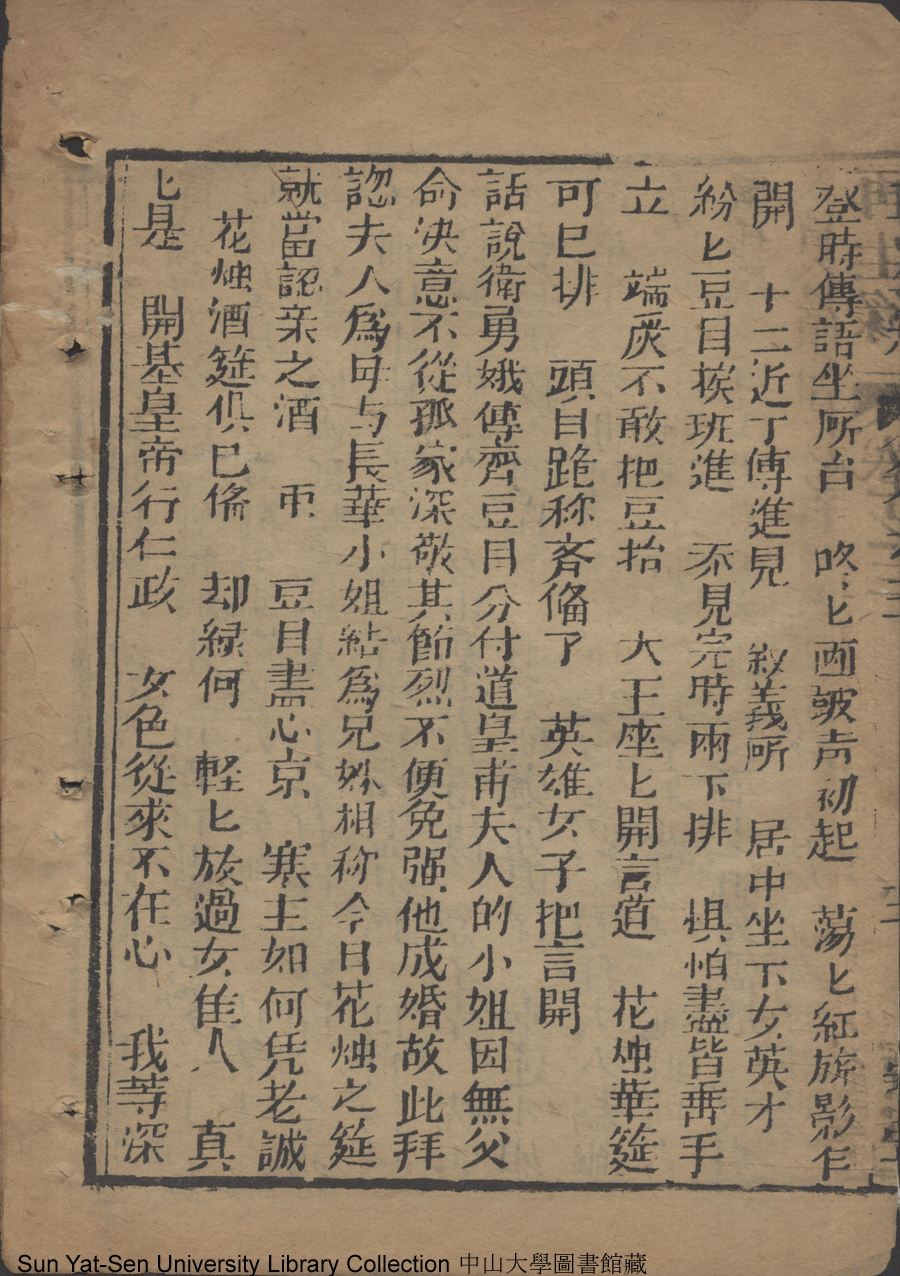 登時傳語坐所台　咚匕画皷声初起　蕩匕紅旗影乍
開　十二近丁傳進見　叙義所　居中坐下女英才
紛匕豆目挨班進　不見完時兩下排　惧怕盡皆垂手
立　端灰不敢把豆抬　大王座匕開言道　花烛華筵
可已排　頭目跪称齐偹了　英雄女子把言開
話說衛勇娥傳齊豆目分付道皇甫夫人的小姐因無父
命決意不從孤家深敬其節烈不便免强他成婚故此拜
認夫人為母与長華小姐結為兄妹相称今日花烛之筵
就當認亲之酒　帀　豆目盡心京　寨主如何凭老誠
花烛酒筵俱已俻　却緑何　軽匕放過女隹人　真
匕是　開基皇帝行仁政　女色從來不在心　我等深
Sun Yat-Sen University Library Collection 中山大學圖書館藏